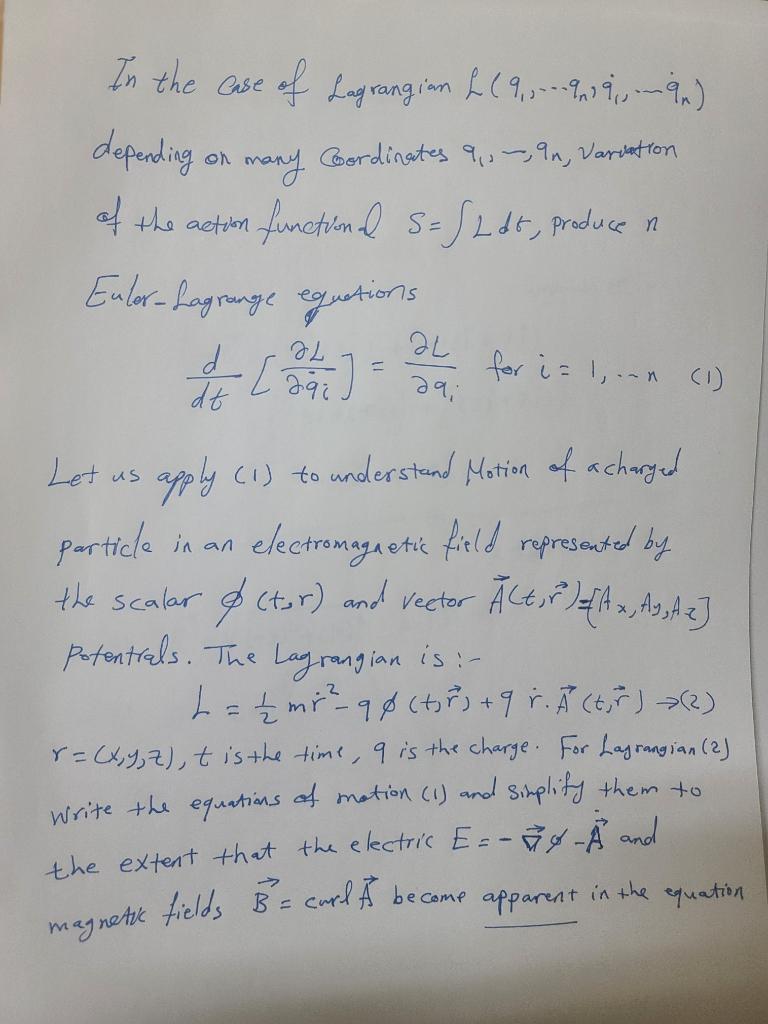 In the case of Lagrangian L(q₁,---qₙ, q̇₁, ---q̇ₙ)
depending on many Coordinates q₁, -, qₙ, Variation
of the action functional S = ∫ L dt, produce n
Euler-Lagrange equations
d/dt [∂L/∂q̇ᵢ] = ∂L/∂qᵢ for i = 1, --- n (1)
Let us apply (1) to understand Motion of a charged
particle in an electromagnetic field represented by
the scalar ϕ (t,r) and vector A⃗(t,r⃗)=[Ax, Ay, Az]
Potentials. The Lagrangian is :-
L = ½ mṙ² - qϕ(t,r⃗) + q ṙ. A⃗ (t,r⃗) → (2)
r = (x,y,z), t is the time, q is the charge. For Lagrangian (2)
write the equations of motion (1) and simplify them to
the extent that the electric E = - ∇⃗ϕ - A⃗̇ and
magnetic fields B⃗ = curl A⃗ become apparent in the equation